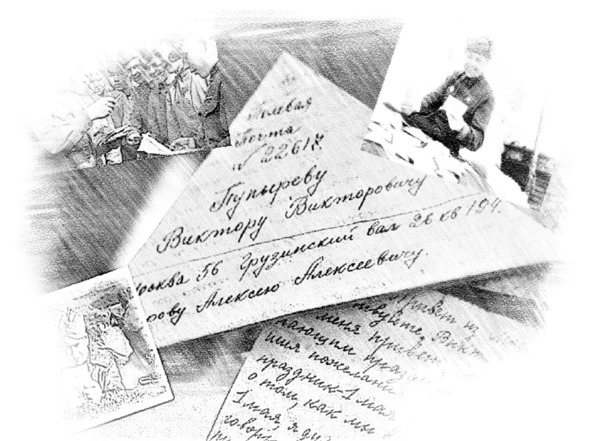 Полевая
Почта
№ 22617.
Пупыреву
Виктору Викторовичу
Москва 56 Грузинский вал 26 кв 194.
рову Алексею Алексеевичу.
Привет из
меня привет
ающим праз
ния пожелани
праздник - 1 мая
о том, как мы
1 мая, я ду
говор